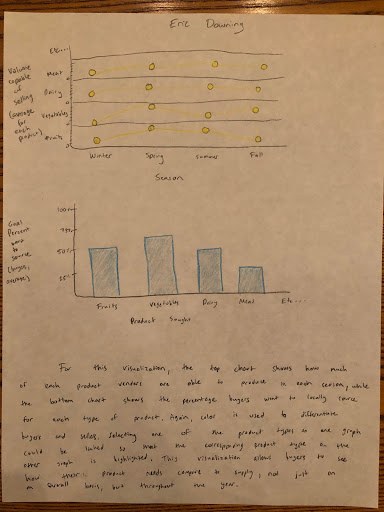 Eric Downing
Etc...
Volume
capable
of
selling
(average
for
each
product)
Meat
Dairy
Vegetables
Fruits
Winter
Spring
Summer
Fall
Season
Goal
Percent
want
to
source
(buyers,
averages)
100%
75%
50%
25%
Fruits
Vegetables
Dairy
Meat
Etc...
Product Sought
For this visualization, the top chart shows how much
of each product vendors are able to produce in each season, while
the bottom chart shows the percentage buyers want to locally source
for each type of product. Again, color is used to differentiate
buyers and sellers. Selecting one of the product types in one graph
could be linked so that the corresponding product type on the
other graph is highlighted. This visualization allows buyers to see
how their product needs compare to supply, not just on
an overall basis, but throughout the year.